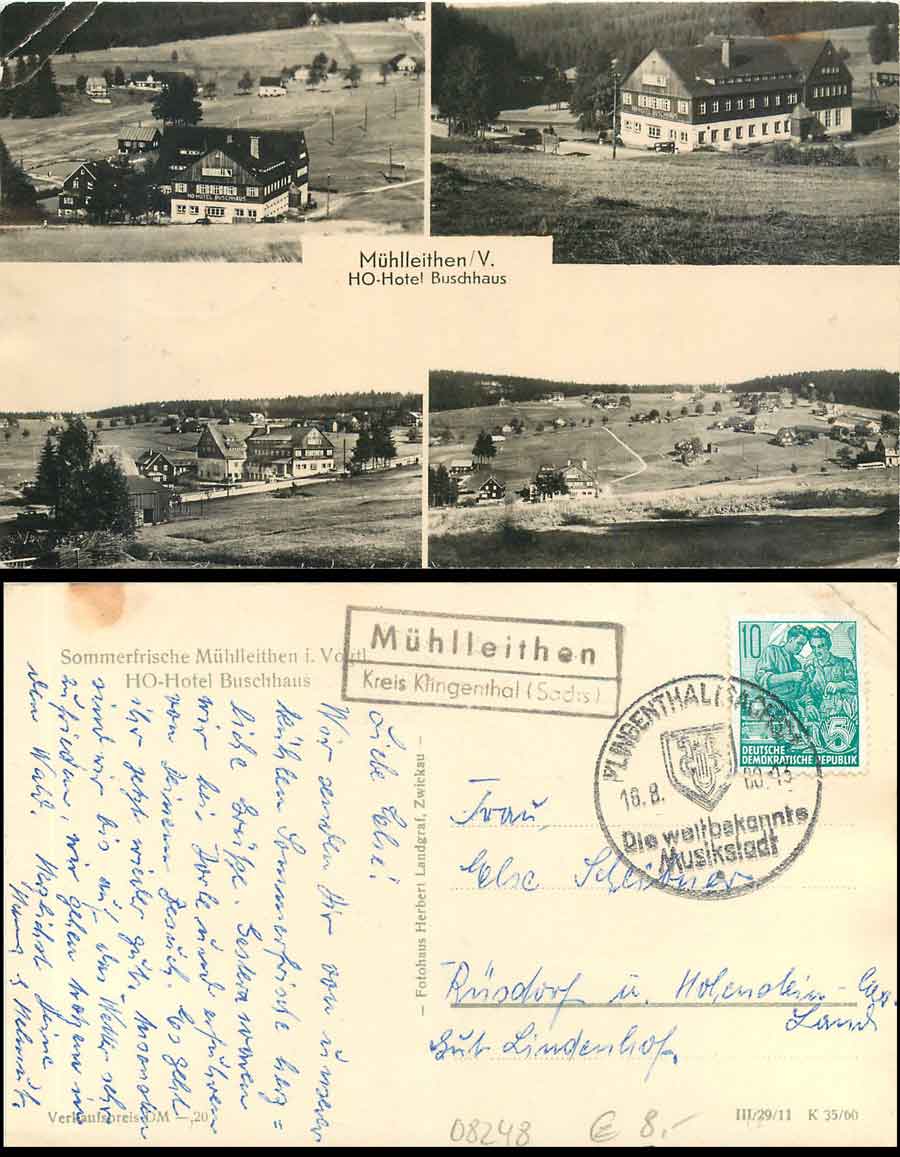 HO-HOTEL BUSCHHAUS
HO-HOTEL BUSCHHAUS
Mühlleithen/V.
HO-Hotel Buschhaus
Sommerfrische Mühlleithen i. Vogtl.
HO-Hotel Buschhaus
Mühlleithen
Kreis Klingenthal (Sachs)
KLINGENTHAL (SACHSEN)
16.8. 60-13
Die weltbekannte
Musikstadt
10
5
DEUTSCHE
DEMOKRATISCHE REPUBLIK
Liebe Else!
Wir senden Dir von unserer
kühlen Sommerfrische herz=
liche Grüße. Gestern waren
wir bei Dorle und erfuhren
von Deinem Besuch. Es geht
ihr jetzt wieder gut. Ansonsten
sind wir bis auf das Wetter sehr
zufrieden, wir gehen morgen in
den Wald. Herzlichst Deine
Helmut
– Fotohaus Herbert Landgraf, Zwickau –
Frau
Else
Rüsdorf ü. Hohenstein-
Land
Gut Lindenhof.
Verkaufspreis DM –,20
III/29/11 K 35/60
08248 € 8,-